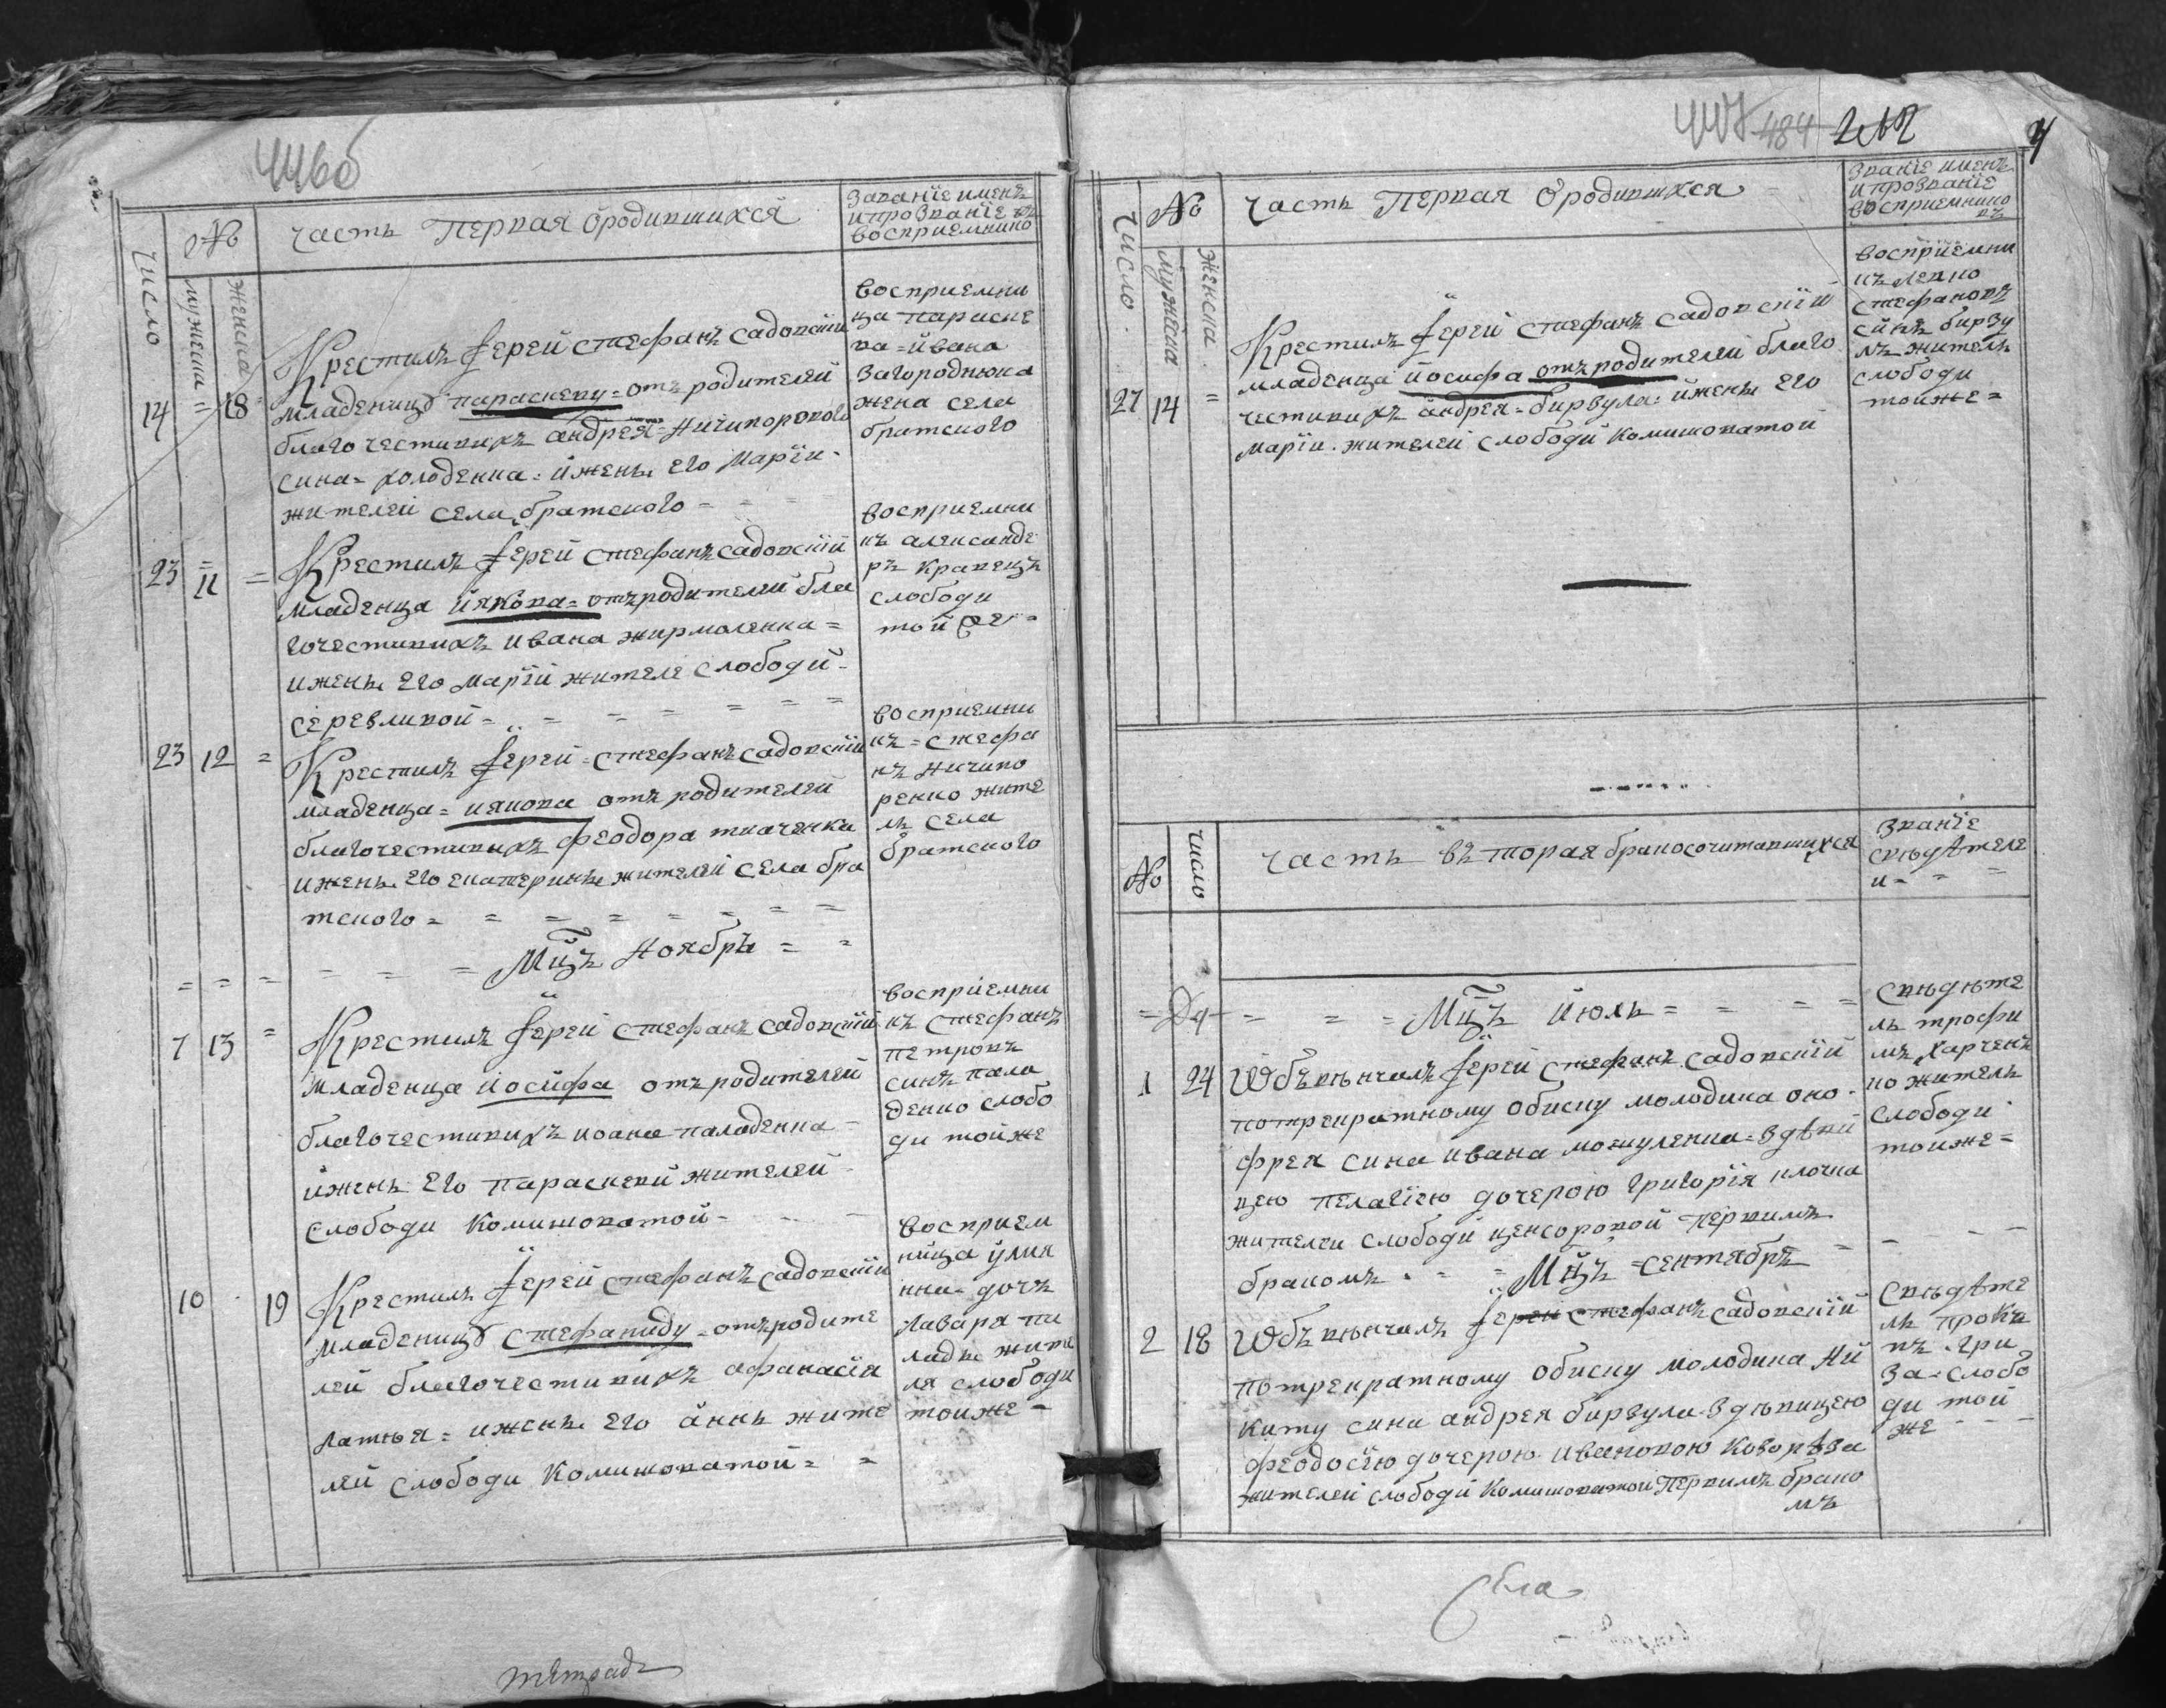 446об
Число
№
мужеска
женска
часть Первая ородившихся
Звание именъ
ипрозвание въ
восприемнико
14 = 18
Крестилъ Іерей стефанъ садовский
младеницу параскеву = отъ родителей
благочестивихъ андрея = Ничипорового
сина = холоденка = ижены его Марїи -
жителей села братского = =
восприемни
ца параске
ва = ивана
Загороднюка
жена села
братского
23 11 =
Крестилъ Іерей стефанъ садовский
младенца иякова = отъ родителей бла
гочестивихъ ивана жирмоленка =
ижены его Марїи жителе слободи =
серевликой =
восприемни
къ александе
ръ кравецъ
слободи
той же =
23 12 =
Крестилъ Іерей = стефанъ садовский
младенца = иякова отъ родителей
благочестивыхъ феодора ткаченка
ижены его екатерины жителей села бра
тского =
восприемни
къ = стефа
нъ Ничипо
ренко жите
ль села
братского
Мцъ Ноябръ = =
7 13 =
Крестилъ Іерей стефанъ садовский
младенца иосифа отъ родителей
благочестивихъ иоана паладенка =
ижены Его параскевй жителей
слободи Комишоватой =
восприемни
къ стефанъ
петровъ
синъ пала
денко слобо
ди тойже
10 19
Крестилъ Іерей стефанъ садовский
младеницу стефаниду = отъ родите
лей благочестивихъ афанасїя
латыя = ижены его анны жите
лей слободи Комишоватой = =
восприем
ница улия
нна дочъ
лавара ти
лады жите
ля слободи
тойже =
тетрадь
484
4
Число
№
мужеска
женска
часть Первая Ородившихся
Званїе именъ
ипрозванїе
восприемнико
въ
27 14 =
Крестилъ Іерей стефанъ садовский
младенца иосифа отъ родителей благо
честивихъ андрея = бирзула = ижены Его
марїи. жителей слободи Комишоватой
восприемни
къ левко
стефановъ
синъ бирзу
лъ житель
слободи
тойже =
№
число
часть въторая бракосочитавшихся
Званїе
свѣдѣтеле
и =
Мцъ Июль = = = =
1 24
Ѡбъвѣнчалъ Іерей стефанъ садовский
потрекратному обиску молодика оно
фрея сина ивана мокуленка = здѣви
цею пелагїею дочерою григорїя клочка
жителей слободи ценсоровой первимъ
бракомъ.
свѣдѣте
ль трофи
мъ харченъ
ко житель
слободи
тойже =
Мцъ = сентябръ
2 18
Ѡбъвѣнчалъ Іерей стефанъ садовский
потрекратному обиску молодика Ни
киту сина андрея бирзула. здѣвицею
феодосїею дочерою. ивановою
жителей слободи Комишоватои Первимъ брако
мъ
свѣдѣте
ль
гри
за = слобо
ди той
же
села